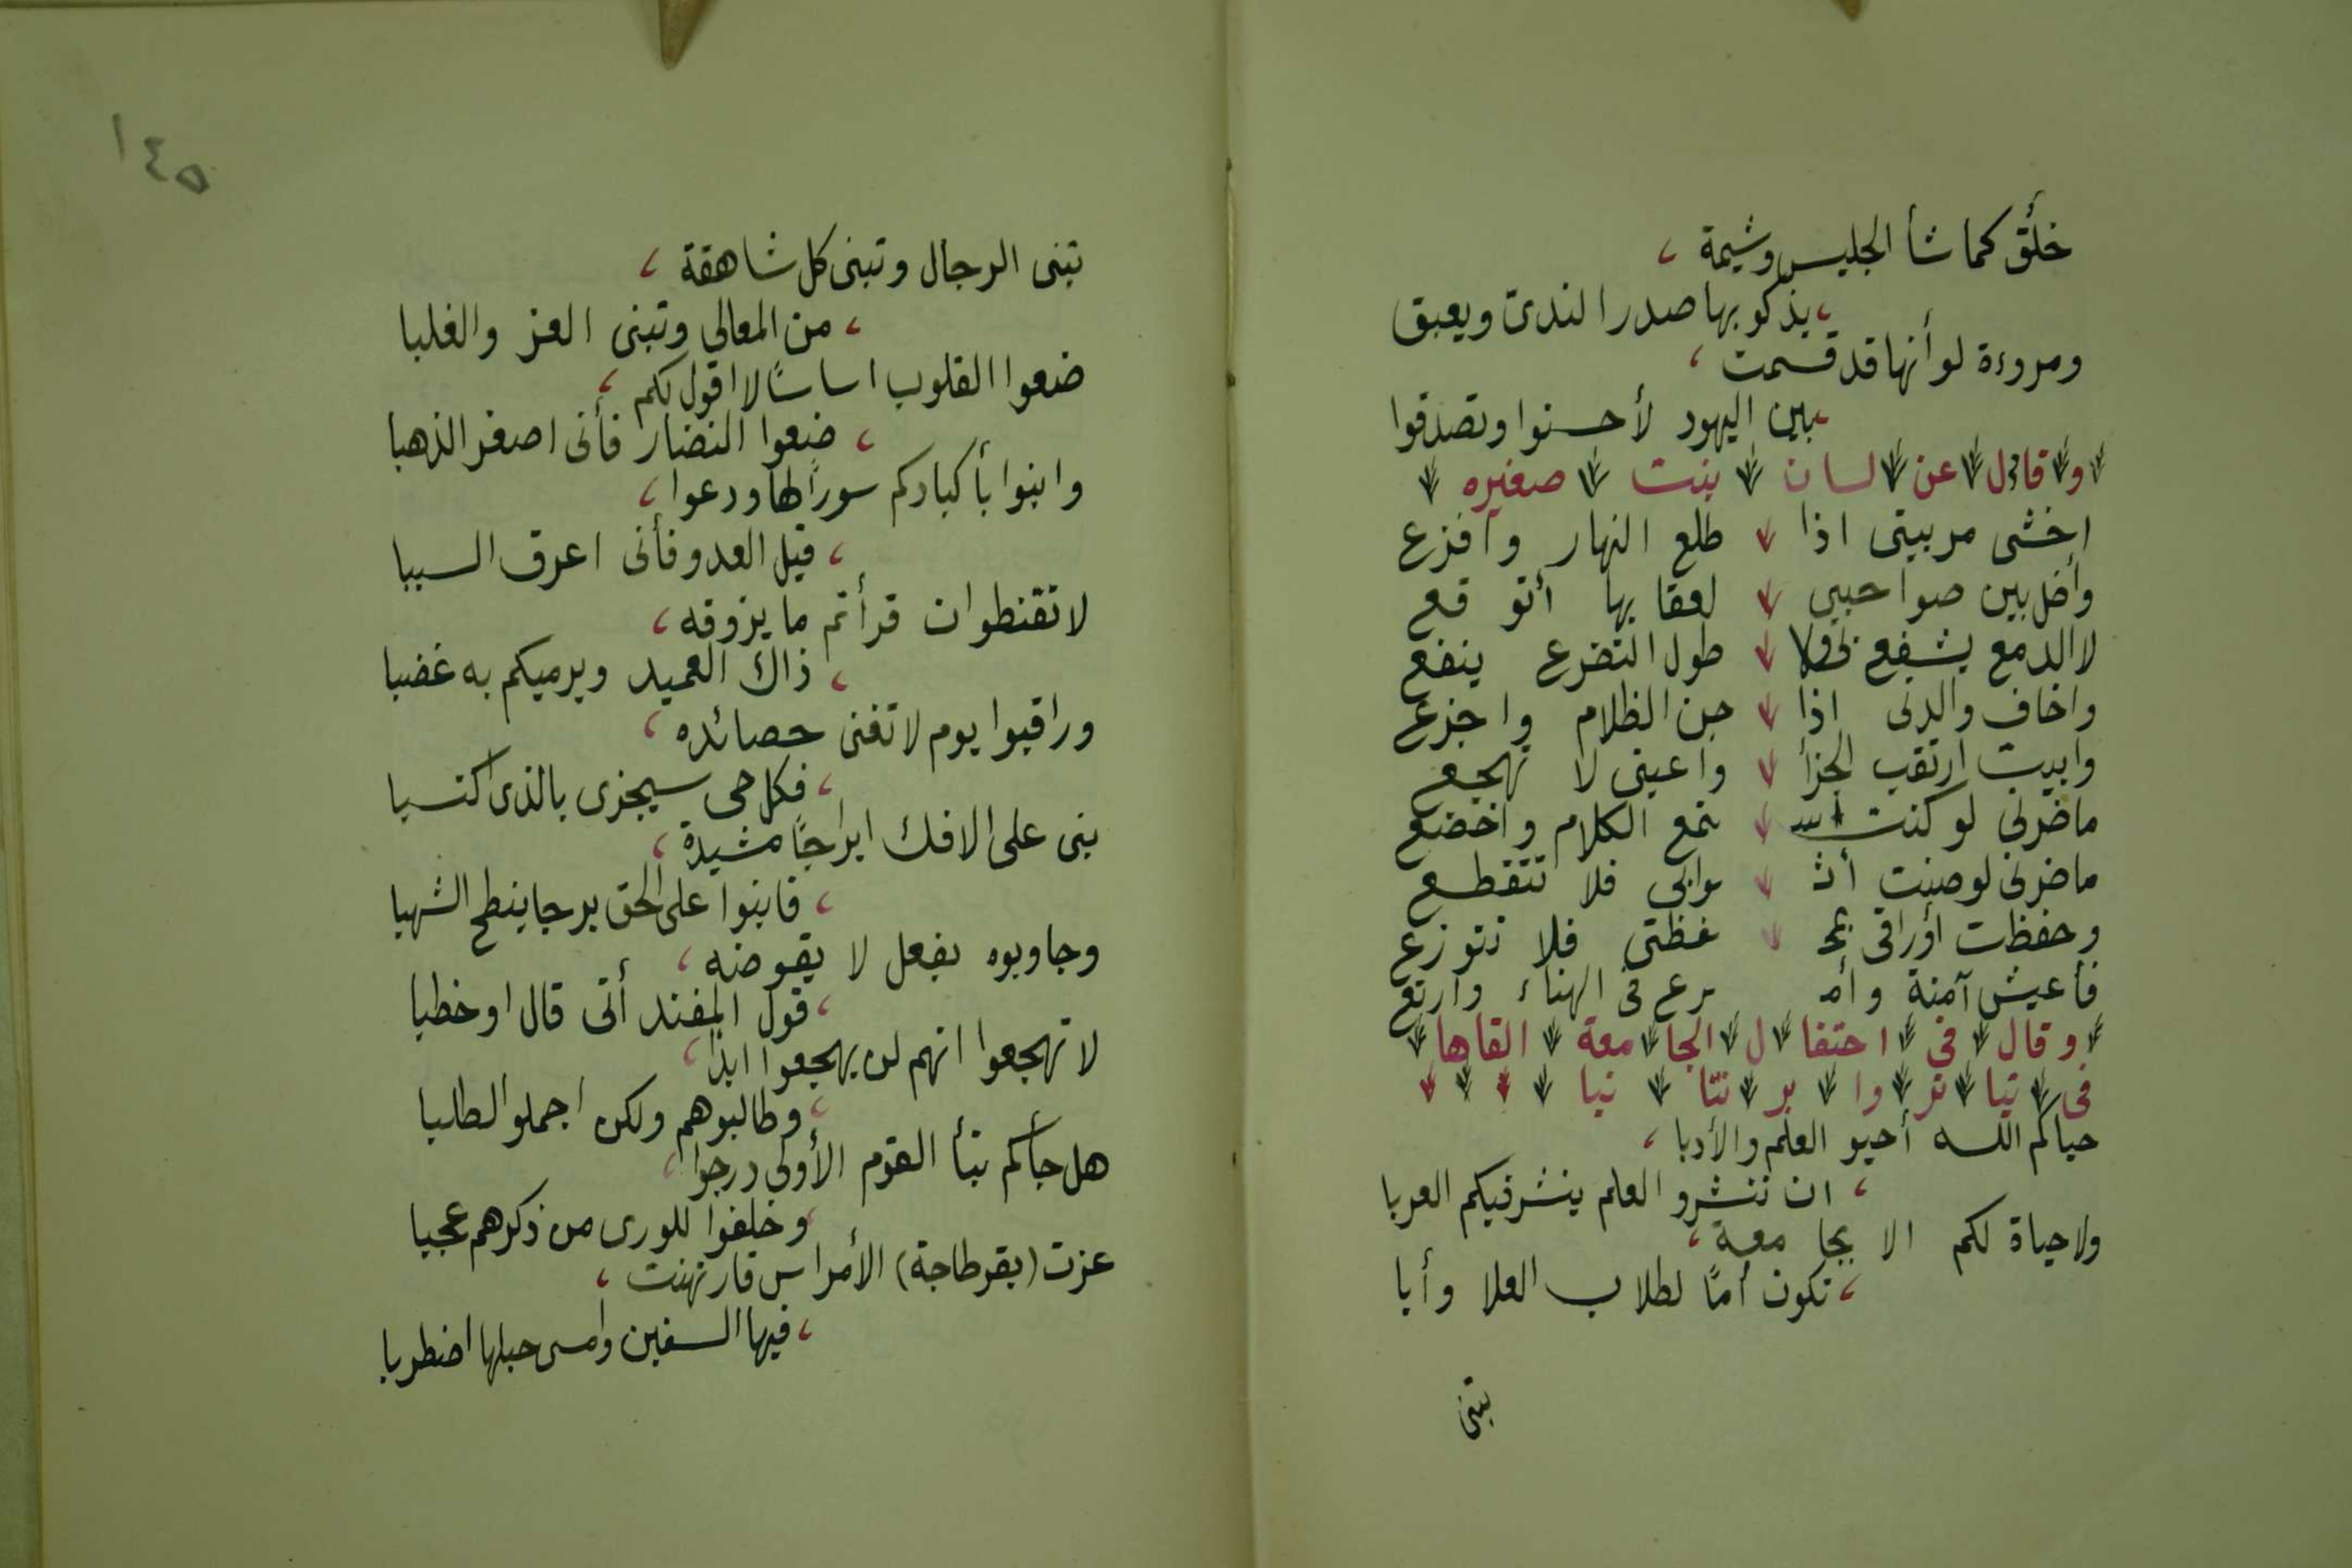 خلُق كما شأ الجليس وشيمة
يذكو بها صدر الندىّ ويعبق
ومروءة لو أنها قد قسمت
بين اليهود لأحسنوا وتصدقوا
وقال عن لسان بنت صغيره
اخشى مربيتى اذا طلع النهار وافزع
وأضل بين صواحبى لعقابها أتوقع
لا الدمع يشفع لى ولا طول التضرع ينفع
واخاف والدتى اذا جن الظلام واجزع
وابيت ارتقب الجزأ واعينى لا تهجع
ماضرنى لو كنت اسـ تمع الكلام واخضع
ماضرنى لوصنت أثـ وابى فلا تتقطع
وحفظت أوراقى بمحـ فظتى فلا تتوزع
فأعيش آمنة وأمـ رع فى الهناء وارتع
وقال فى احتفال الجامعة القاها
فى تياتروا برنتانيا
حياكم اللـه أحيو العلم والأدبا
ان تنشرو العلم ينشر فيكم العربا
ولا حياة لكم الا بجامعة
تكون أمًا لطلاب العلا وأبا
تبنى
١٤٥
تبنى الرجال وتبنى كل شاهقة
من المعالي وتبنى العز والغلبا
ضعوا القلوب اساسًا لا اقول لكم
ضعوا النضار فأنى اصغر الذهبا
وابنوا بأكبادكم سورًا لها ودعوا
قيل العدو فأنى اعرف السببا
لا تقنطوا ان قرأتم ما يزوقه
ذاك العميد ويرميكم به غضبا
وراقبوا يوم لا تغنى حصائده
فكل حى سيجزى بالذى اكتسبا
بنى على الافك ابراجًا مشيدة
فابنوا على الحق برجا ينطح الشهبا
وجاوبوه بفعل لا يقوضه
قول المفند أنى قال او خطبا
لا تهجعوا انهم لن يهجعوا ابدًا
وطالبوهم ولكن اجملو الطلبا
هل جأكم نبأ القوم الأولى درجوا
وخلفوا للورى من ذكرهم عجبا
عزت (بقرطاجة) الأمراس فارتهنت
فيها السفين وامسى حبلها اضطربا